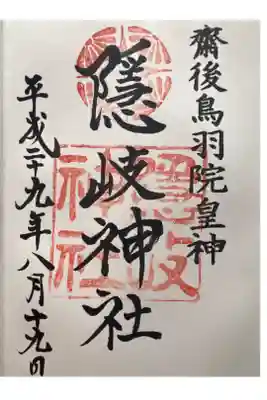 齋後鳥羽院皇神
隱岐神社
平成二十九年八月十九日
隠岐
神社